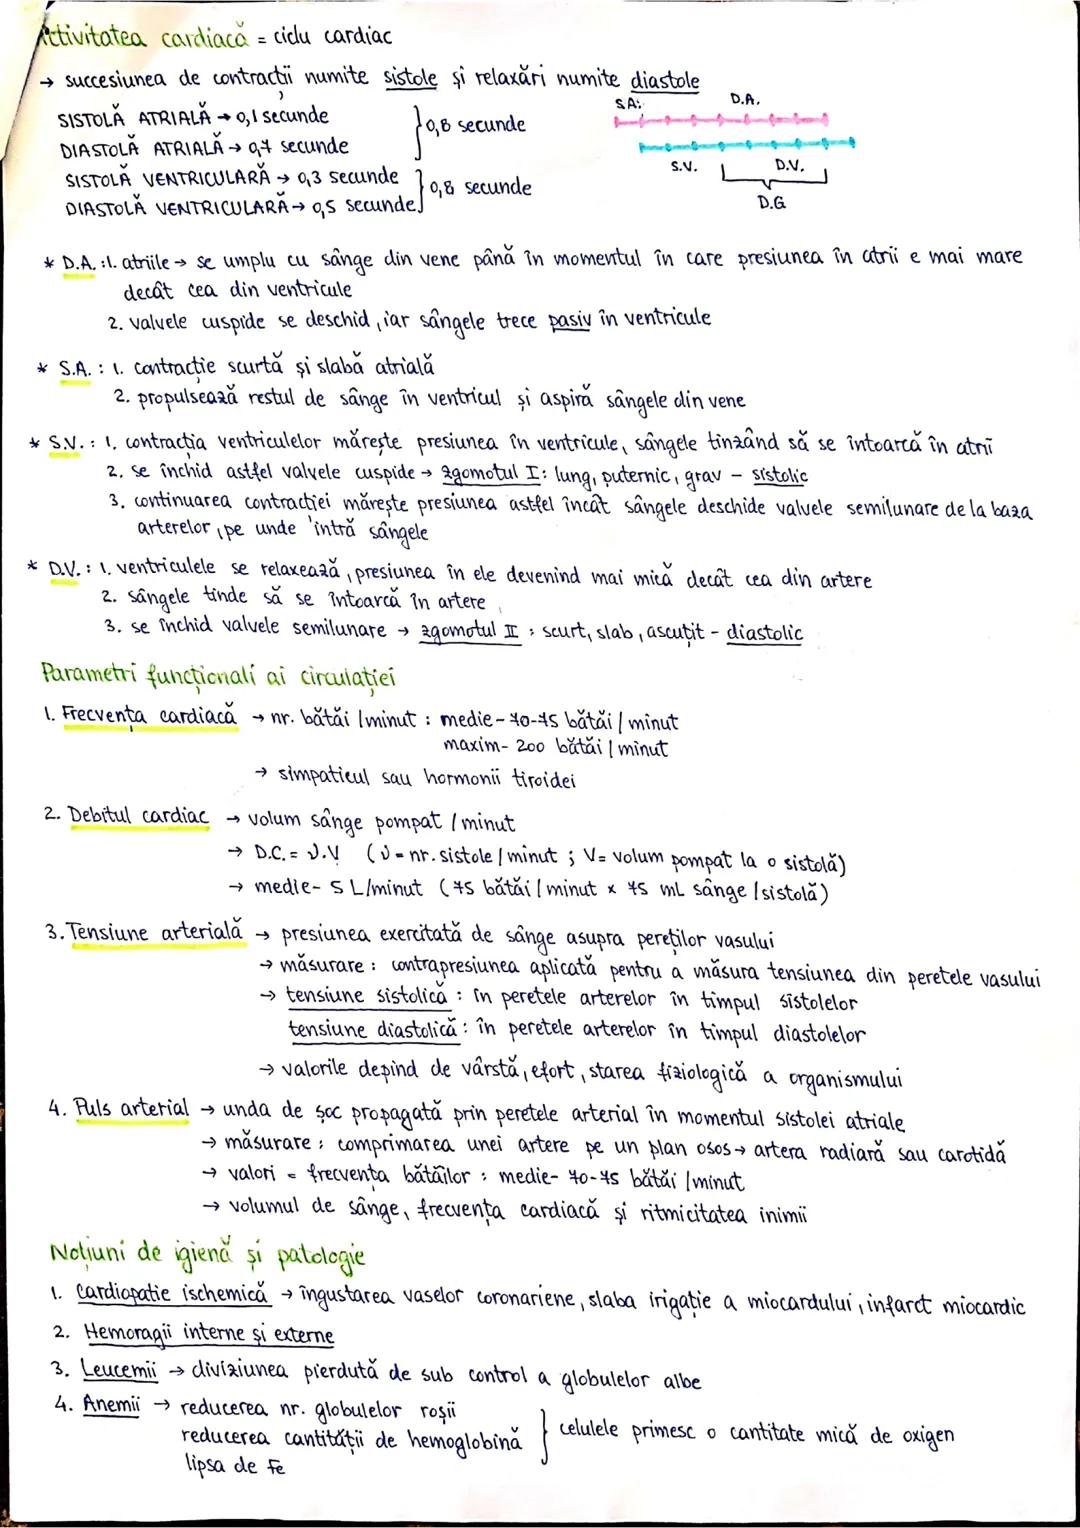 Activitatea cardiacă = ciclu cardiac
→ succesiunea de contracții numite sistole și relaxări numite diastole
SISTOLĂ ATRIALĂ → 0,1 secunde
DIASTOLĂ ATRIALĂ → 0,7 secunde
} 0,8 secunde
SISTOLĂ VENTRICULARĂ → 0,3 secunde
DIASTOLĂ VENTRICULARĂ → 0,5 secunde
} 0,8 secunde
S.A. D.A.
S.V. D.V.
D.G
* D.A.: 1. atriile → se umplu cu sânge din vene până în momentul în care presiunea în atrii e mai mare
decât cea din ventricule
2. valvele cuspide se deschid, iar sângele trece pasiv în ventricule
* S.A.: 1. contracție scurtă și slabă atrială
2. propulsează restul de sânge în ventricul și aspiră sângele din vene
* S.V.: 1. contracția ventriculelor mărește presiunea în ventricule, sângele tinzând să se întoarcă în atrii
2. se închid astfel valvele cuspide → zgomotul I: lung, puternic, grav - sistolic
3. continuarea contracției mărește presiunea astfel încât sângele deschide valvele semilunare de la baza
arterelor, pe unde intră sângele
* D.V.: 1. ventriculele se relaxează, presiunea în ele devenind mai mică decât cea din artere
2. sângele tinde să se întoarcă în artere
3. se închid valvele semilunare → zgomotul II: scurt, slab, ascuțit - diastolic
Parametri funcționali ai circulației
1. Frecvența cardiacă → nr. bătăi / minut : medie - 70-75 bătăi / minut
maxim - 200 bătăi / minut
→ simpaticul sau hormonii tiroidei
2. Debitul cardiac → volum sânge pompat / minut
→ D.C. = ν·V (ν = nr. sistole / minut ; V = volum pompat la o sistolă)
→ medie - 5 L/minut (75 bătăi / minut x 75 mL sânge / sistolă)
3. Tensiune arterială → presiunea exercitată de sânge asupra pereților vasului
→ măsurare : contrapresiunea aplicată pentru a măsura tensiunea din peretele vasului
→ tensiune sistolică : în peretele arterelor în timpul sistolelor
tensiune diastolică : în peretele arterelor în timpul diastolelor
→ valorile depind de vârstă, efort, starea fiziologică a organismului
4. Puls arterial → unda de șoc propagată prin peretele arterial în momentul sistolei atriale
→ măsurare : comprimarea unei artere pe un plan osos → artera radiară sau carotidă
→ valori = frecvența bătăilor : medie - 70-75 bătăi / minut
→ volumul de sânge, frecvența cardiacă și ritmicitatea inimii
Noțiuni de igienă și patologie
1. Cardiopatie ischemică → îngustarea vaselor coronariene, slaba irigație a miocardului, infarct miocardic
2. Hemoragii interne și externe
3. Leucemii → diviziunea pierdută de sub control a globulelor albe
4. Anemii → reducerea nr. globulelor roșii
reducerea cantității de hemoglobină
lipsa de Fe
} celulele primesc o cantitate mică de oxigen